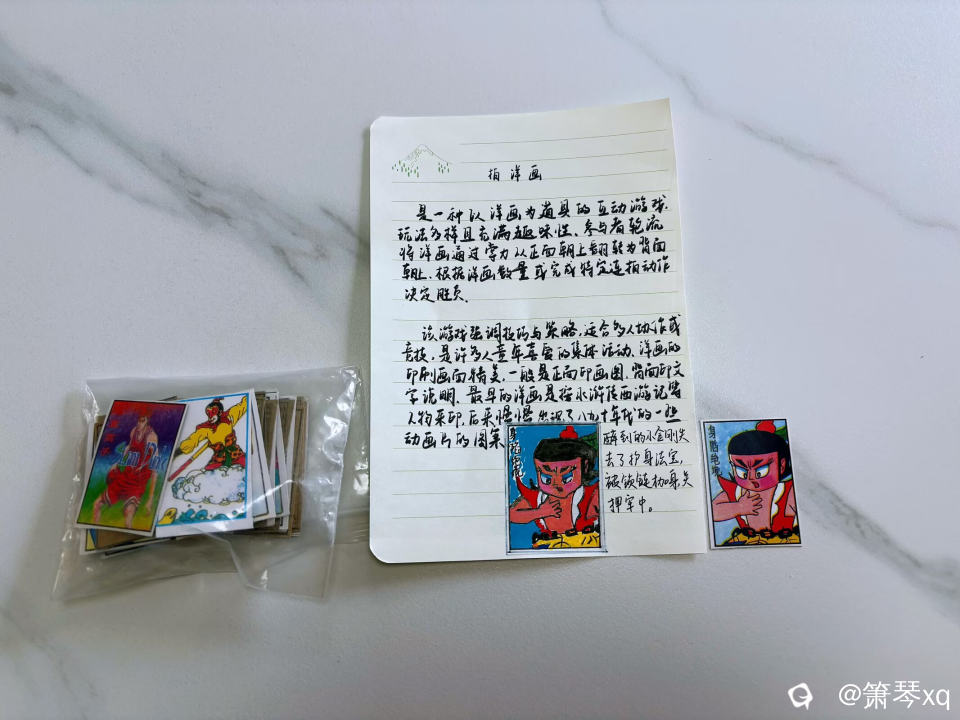 拍洋画
是一种以洋画为道具的互动游戏.
玩法多样且充满趣味性、参与者轮流
将洋画通过掌力从正面朝上翻转为背面
朝上.根据洋画数量或完成特定连拍动作
决定胜负.
该游戏强调技巧与策略.适合多人协作或
竞技.是许多人童年喜爱的集体活动.洋画的
印刷画面精美.一般是正面印画图.背面印文
字说明.最早的洋画是按水浒传西游记等
人物来印.后来慢慢出现了八九十年代的一些
动画片的图案
醉到的小金刚失
去了护身法宝,
被锁链枷身关
押牢中。
身陷绝境
@箫琴xq